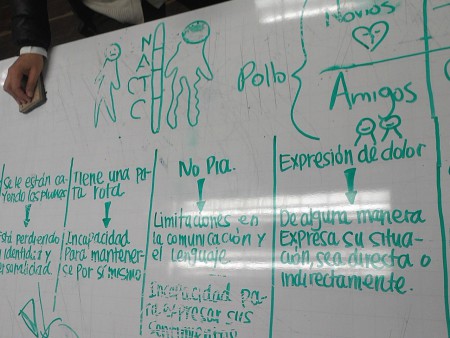 Novios
N
A
C
T
C
Pollo
Amigos
Se le están ca-
yendo las plumas
Está perdiendo
identidad y
Tiene una pa-
ta rota
Incapacidad
Para mantener-
se por sí mismo
No Pia.
Limitaciones en
la comunicación y
el lenguaje.
Incapacidad pa-
ra expresar sus
Expresión de dolor
De alguna manera
Expresa su situa-
ción, sea directa o
indirectamente.